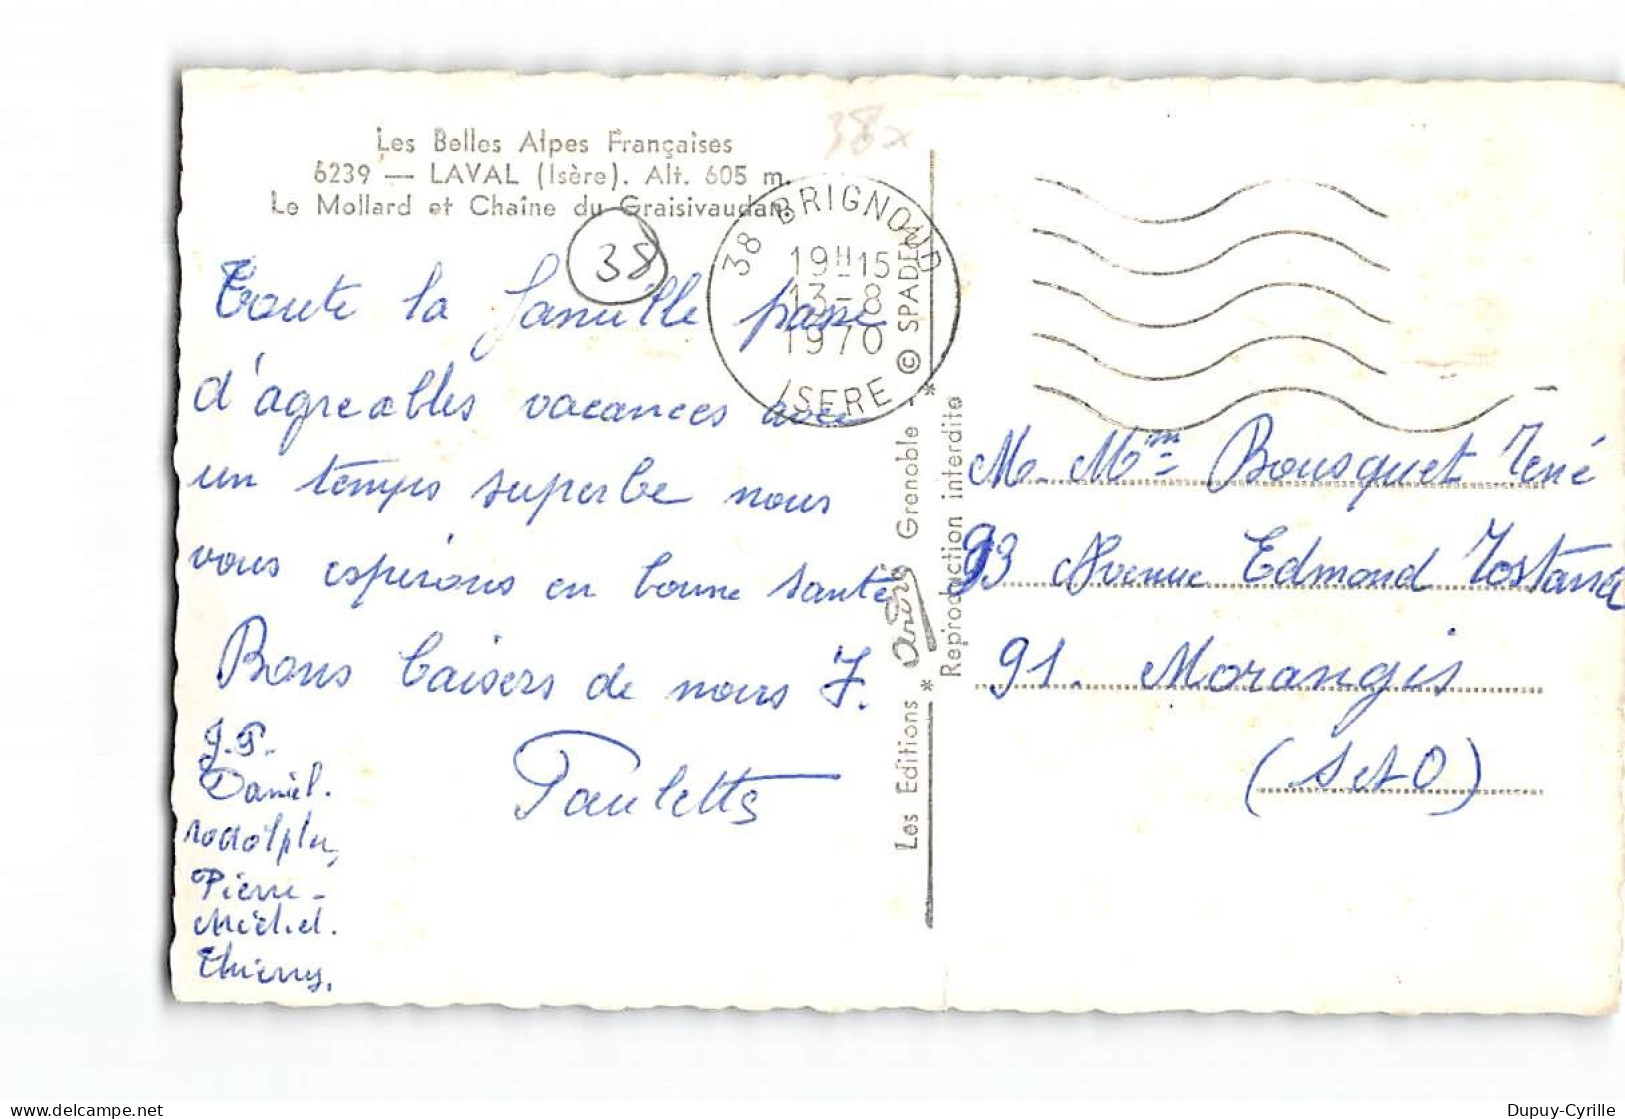 38x
Les Belles Alpes Françaises
6239 — LAVAL (Isère). Alt. 605 m.
Le Mollard et Chaîne du Graisivaudan.
38
38 BRIGNOUD
19H15
13-8
1970
ISERE
Toute la famille passe
d'agréables vacances avec
un temps superbe nous
vous espérons en bonne santé
Bons baisers de nous 7.
J.P.
Daniel.
Rodolphe,
Pierre-
Michel.
Thierry.
Paulette
Les Editions * André * Grenoble - © SPADEM
Reproduction interdite
M. Mme Bousquet René
93 Avenue Edmond
91. Morangis
(S et O)
delcampe.net
Dupuy-Cyrille